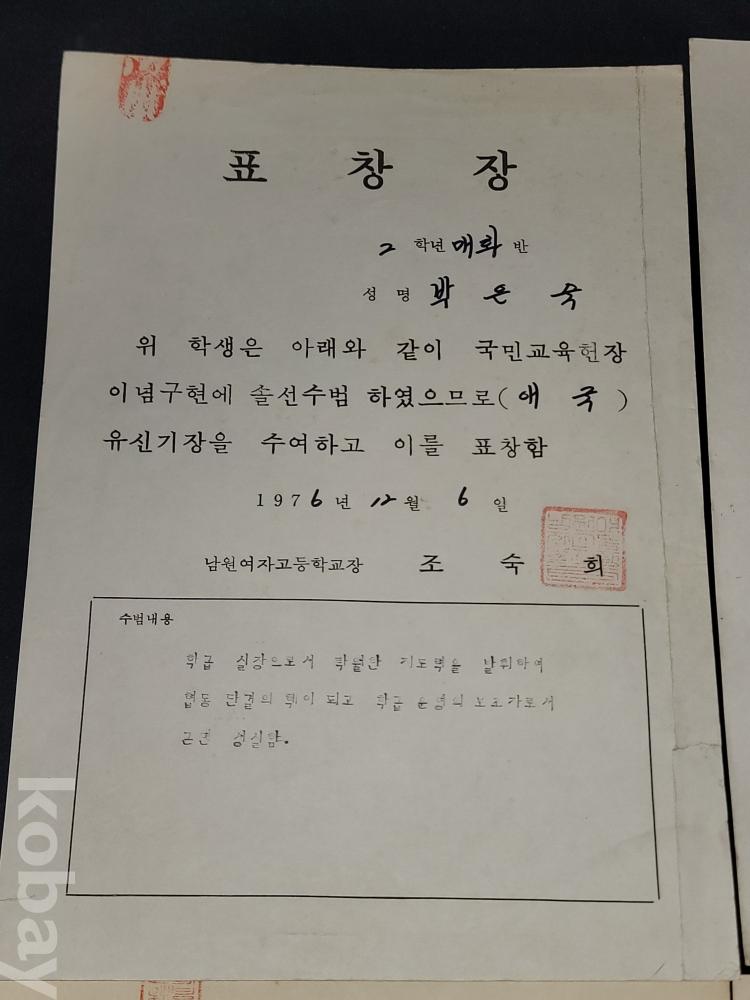 표 창 장
2 학년 매화 반
성 명 박 은 숙
위 학생은 아래와 같이 국민교육헌장
이념구현에 솔선수범 하였으므로( 애 국 )
유신기장을 수여하고 이를 표창함
1976년 12월 6일
남원여자고등학교장 조 숙 희
수범내용
학급 실장으로서 탁월한 지도력을 발휘하여
협동 단결의 핵이 되고 학급 운영의 보조자로서
근면 성실함.
kobay